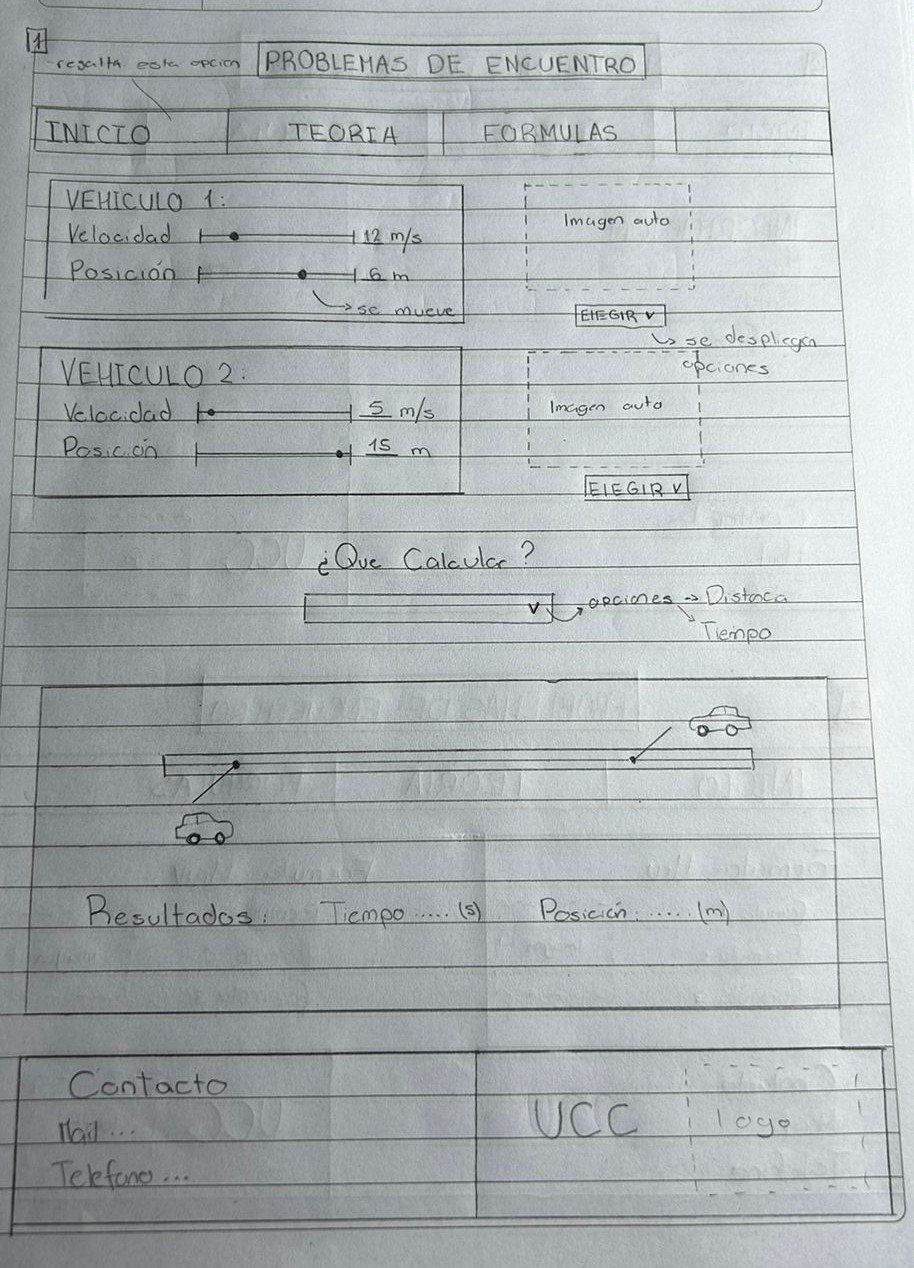 1
resalta esta opcion
PROBLEMAS DE ENCUENTRO
INICIO TEORIA FORMULAS
VEHICULO 1:
Velocidad 12 m/s
Posición 6 m
se mueve
Imagen auto
ElEGIR v
se despliegan
opciones
VEHICULO 2:
Velocidad 5 m/s
Posición 15 m
Imagen auto
ElEGIR v
¿Que Calcular?
v opciones → Distnca
Tiempo
Resultados: Tiempo ..... (s) Posición: ..... (m)
Contacto
Mail ...
Telefono ...
UCC logo